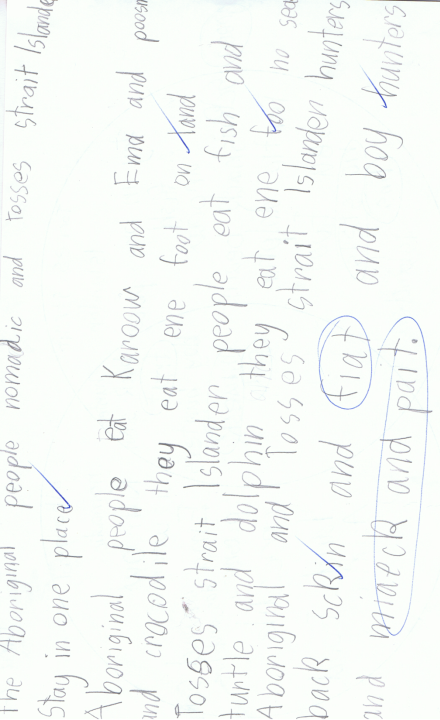 the Aboriginal people nomadic and tosses strait Islande
Stay in one place
Aboriginal people eat Karoow and Ema and poosm
and crocodile they eat ene foot on land
Tosses strait Islander people eat fish and
turtle and dolphin they eat ene foo no sea
Aboriginal and Tosses strait Islander hunters
back sckin and flat and boy hunters
and miaeck and pait.